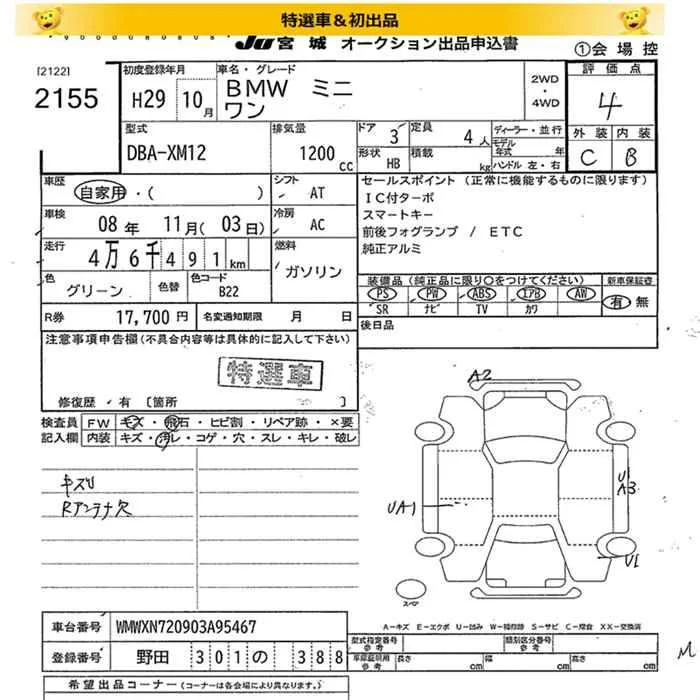 特選車＆初出品
JU宮城 オークション出品申込書
①会場控
[2122]
2155
初度登録年月
H29 10月
車名・グレード
BMW ミニ
ワン
2WD
・
4WD
評価点
4
外装 内装
C B
型式
DBA-XM12
排気量
1200cc
ドア 3
定員 4人
形状 HB
積載 kg
ディーラー・並行
モデル年式 年
ハンドル 左・右
車歴
自家用・( )
シフト AT
車検
08年 11月(03日)
冷房 AC
走行
4万6千491km
燃料
ガソリン
色
グリーン
色替
色コード
B22
R券 17,700円
名変通知期限 月 日
セールスポイント (正常に機能するものに限ります)
IC付ターボ
スマートキー
前後フォグランプ / ETC
純正アルミ
装備品(純正品に限り○をつけてください)
新車保証書
PS PW ABS エアB AW
SR ナビ TV カワ
有 無
後日品
注意事項申告欄(不具合内容等は具体的に記入して下さい)
特選車
修復歴・有 [箇所 ]
検査員
記入欄
FW キズ・飛石・ヒビ割・リペア跡・×要
内装 キズ・汚レ・コゲ・穴・スレ・キレ・破レ
キズU
Rアンテナ欠
A2
U
A3
UA1
U1
スペア
A-キズ E-エクボ U-凹み W-補修跡 S-サビ C-腐食 XX-交換済
車台番号 WMWXN720903A95467
登録番号 野田 301の 388
型式指定番号
参考
類別区分番号
参考
車庫証明用
参考
長さ cm
幅 cm
高さ cm
M
希望出品コーナー (コーナーは各会場により異なります。)